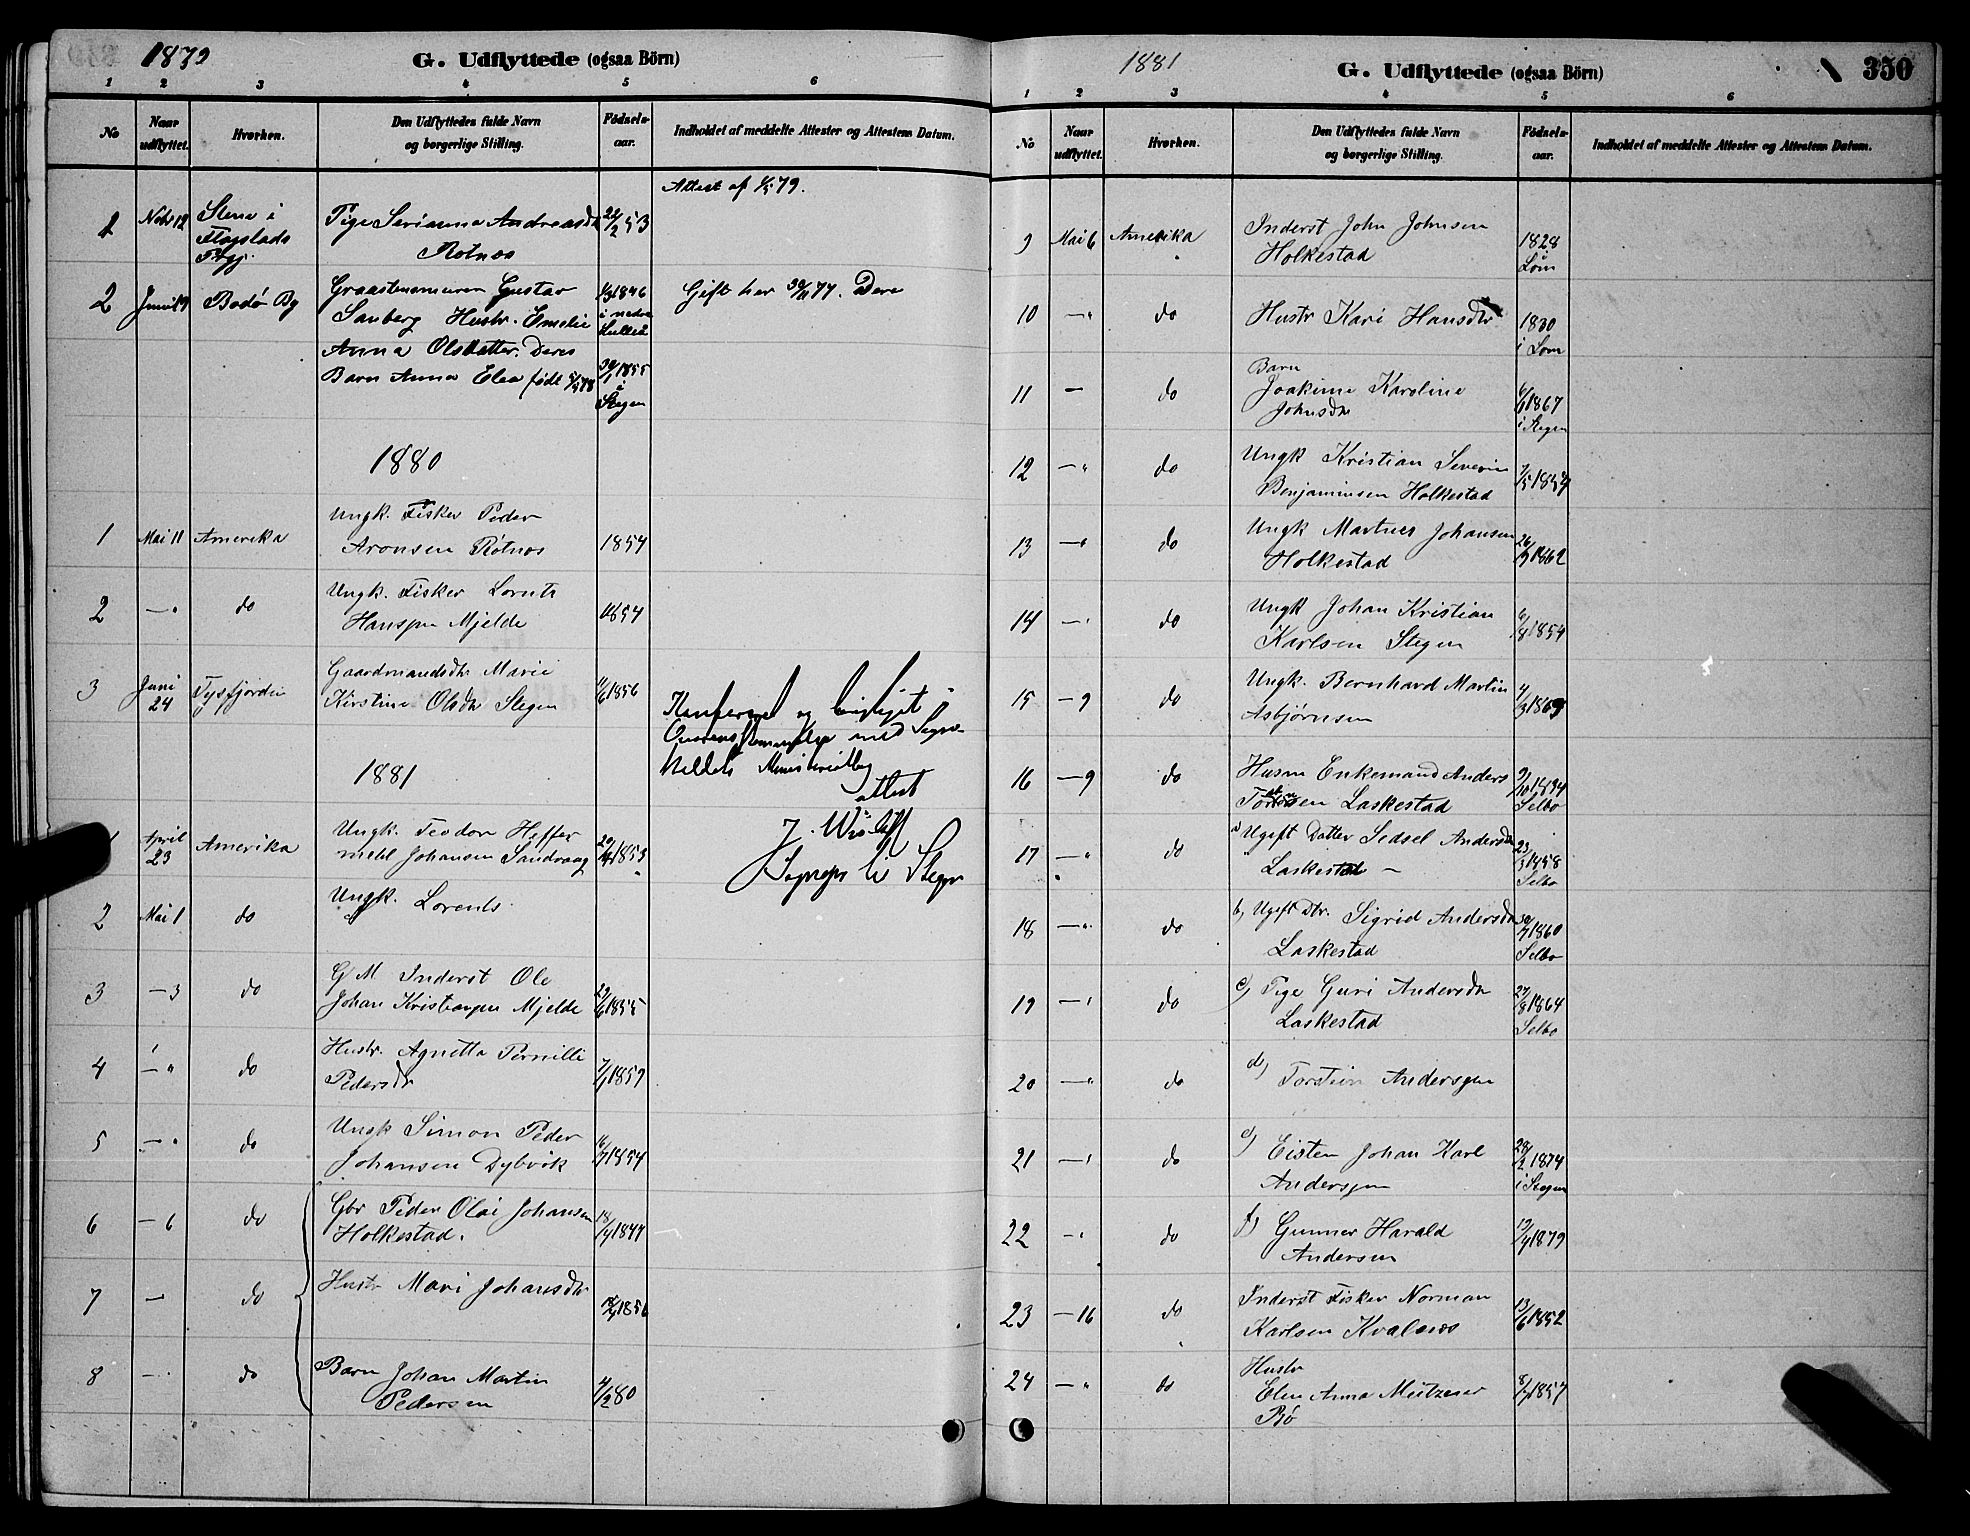 1879
G. Udflyttede (ogsaa Börn)
1 2 3 4 5 6
No
Naar udflyttet.
Hvorhen.
Den Udflyttedes fulde Navn
og borgerlige Stilling.
Födselsaar.
Indholdet af meddelte Attester og Attestens Datum.
Attest af 79.
1 Novbr 12 Stene i Pige Serianna Andreasdtr 22/2 53
Flagstads Rotnes
Prgj.
2 Juni 19 Bodø By Graastensmurer Gustav 1846 Gift her 30/11 77. Dere
Sanberg Hustr. Emelie i nedre
Anna Olsdatter. Deres
Barn Anna Elea født 78 30/1 1855
i
Stegen
1880
1 Mai 11 Amerika Ungk. Fisker Peder
Aronsen Røtnes 1854
2 — " do Ungk. Fisker Lornts
Hanssen Mjelde 1854
3 Juni 24 Tysfjorden Gaardmandsdtr Marie
Kirstine Olsdtr Stegen 11/6 1856
Konfereret og befundet i
Overensstemmelse med Sogne-
kaldets Ministerialbog
attest
1881
1 April 23 Amerika Ungk. Teodor Heffer
mehl Johansen Sandvaag 1853
Sognepr til Stegen
2 Mai 1 do Ungk. Lorents
3 — 3 do G M Inderst Ole
Johan Kristensen Mjelde 1855
4 — " do Hustr. Agnetta Pernilli
Pedersdtr 1859
5 — " do Ungk Simon Peder
Johansen Dybvik 1854
6 — 6 do Gbr Peder Olai Johansen
Holkestad.
7 — do Hustr Mari Johansdtr 1856
8 — do Barn Johan Martin
Pedersen 4/2 80
1881
G. Udflyttede (ogsaa Börn)
350
1 2 3 4 5 6
No
Naar udflyttet.
Hvorhen.
Den Udflyttedes fulde Navn
og borgerlige Stilling.
Födselsaar.
Indholdet af meddelte Attester og Attestens Datum.
9 Mai 6 Amerika Inderst John Johnsen
Holkestad 1828
Lom
10 — " do Hustr Kari Hansdtr 1830
i Lom
11 — do Barn
Joakime Karoline
Johnsdtr 1867
i Stegen
12 — " do Ungk Kristian Severin
Benjaminsen Holkestad
13 — " do Ungk Martnes Johansen
Holkestad 1862
14 — " do Ungk Johan Kristian
Karlsen Stegen 6/8 1854
15 — 9 do Ungk. Bernhard Martin
Asbjørnsen
16 — 9 do Husm Enkemand Anders
Laskestad 9/10 1834
Selbo
17 — " do a) Ugift Datter Sedsel Andersdtr
Laskestad — 23/3 1858
Selbo
18 — " do b) Ugift Dtr. Sigrid Andersdtr
Laskestad 1860
Selbo
19 — " do c) Pige Guri Andersdtr
Laskestad 27/8 1864
Selbo
20 — " do d) Torstein Anderssen
21 — " do e) Eisten Johan Karl
Anderssen 28/2 1874
i Stegen
22 — " do f) Gunner Harald
Andersen 1879
23 — 16 do Inderst Fisker Norman
Karlsen Kvalnes 13/6 1852
24 — " do Hustr
Elen Anna Meitzener
Bø 1857